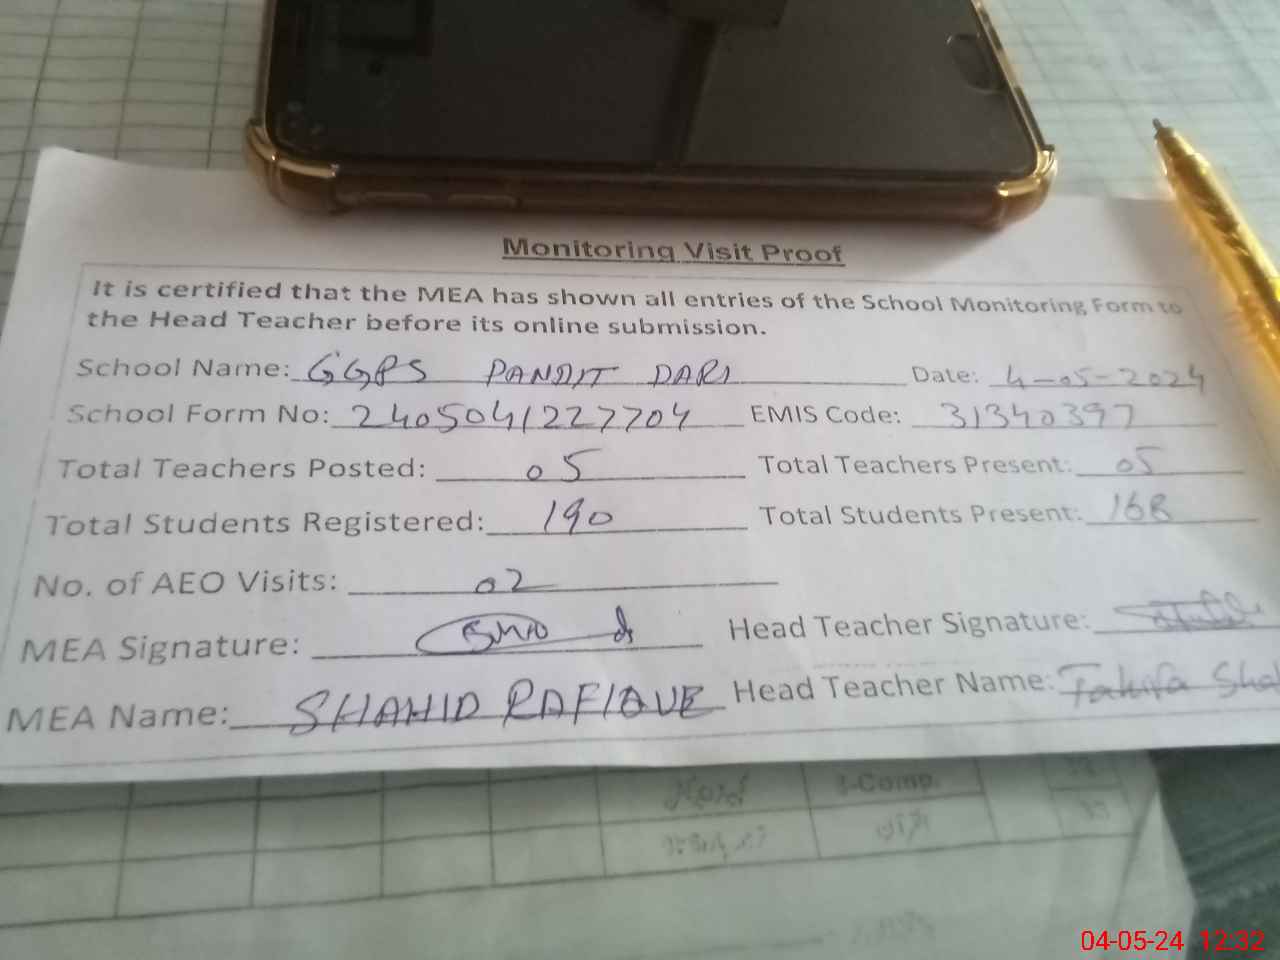 Monitoring Visit Proof
It is certified that the MEA has shown all entries of the School Monitoring Form to
the Head Teacher before its online submission.
School Name: GGPS PANDIT DARI Date: 4-05-2024
School Form No: 2405041227704 EMIS Code: 31340397
Total Teachers Posted: 05 Total Teachers Present: 05
Total Students Registered: 190 Total Students Present: 168
No. of AEO Visits: 02
MEA Signature: Head Teacher Signature:
MEA Name: SHAHID RAFIQUE Head Teacher Name:
04-05-24 12:32